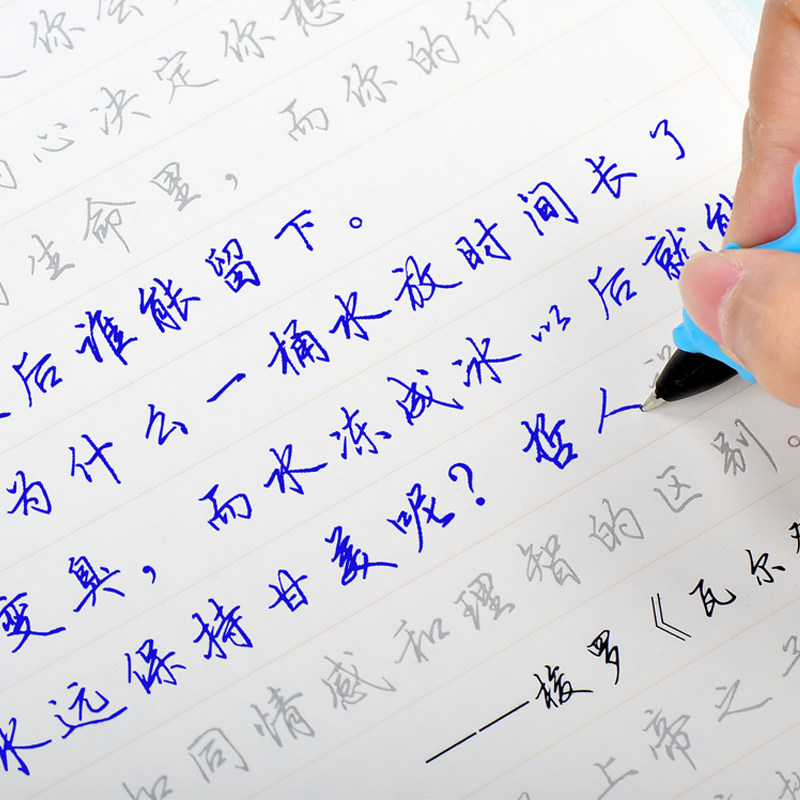 你会
心决定你想
生命里，而你的行
后谁能留下。
为什么一桶水放时间长了
变臭，而水冻成冰以后就能
永远保持甘美呢？哲人
如同情感和理智的区别。
——梭罗《瓦尔
上帝之